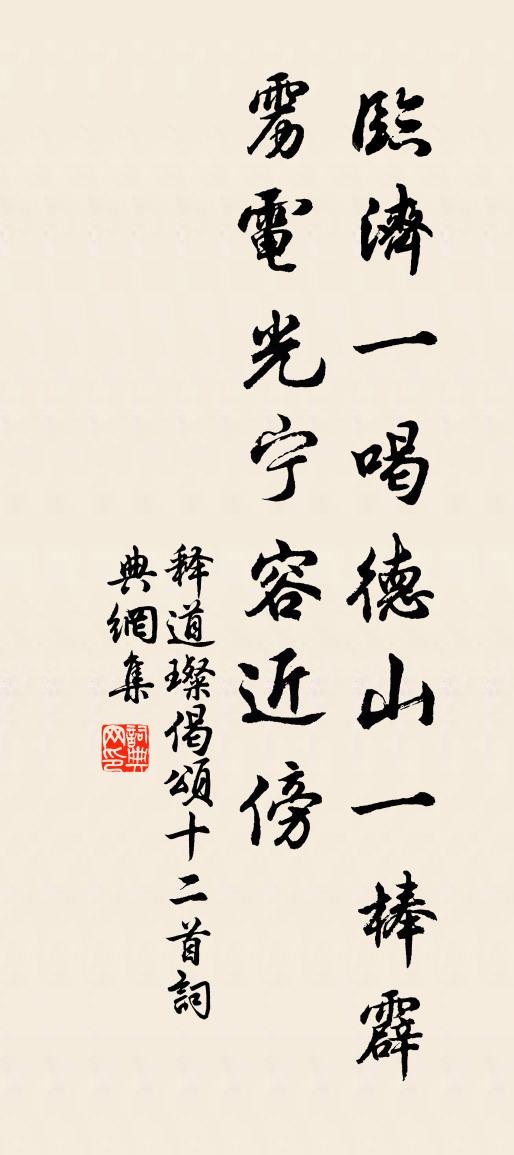 臨濟一喝德山一棒霹
雳電光宁容近傍
释道璨偈頌十二首詞
典網集
詞典网印